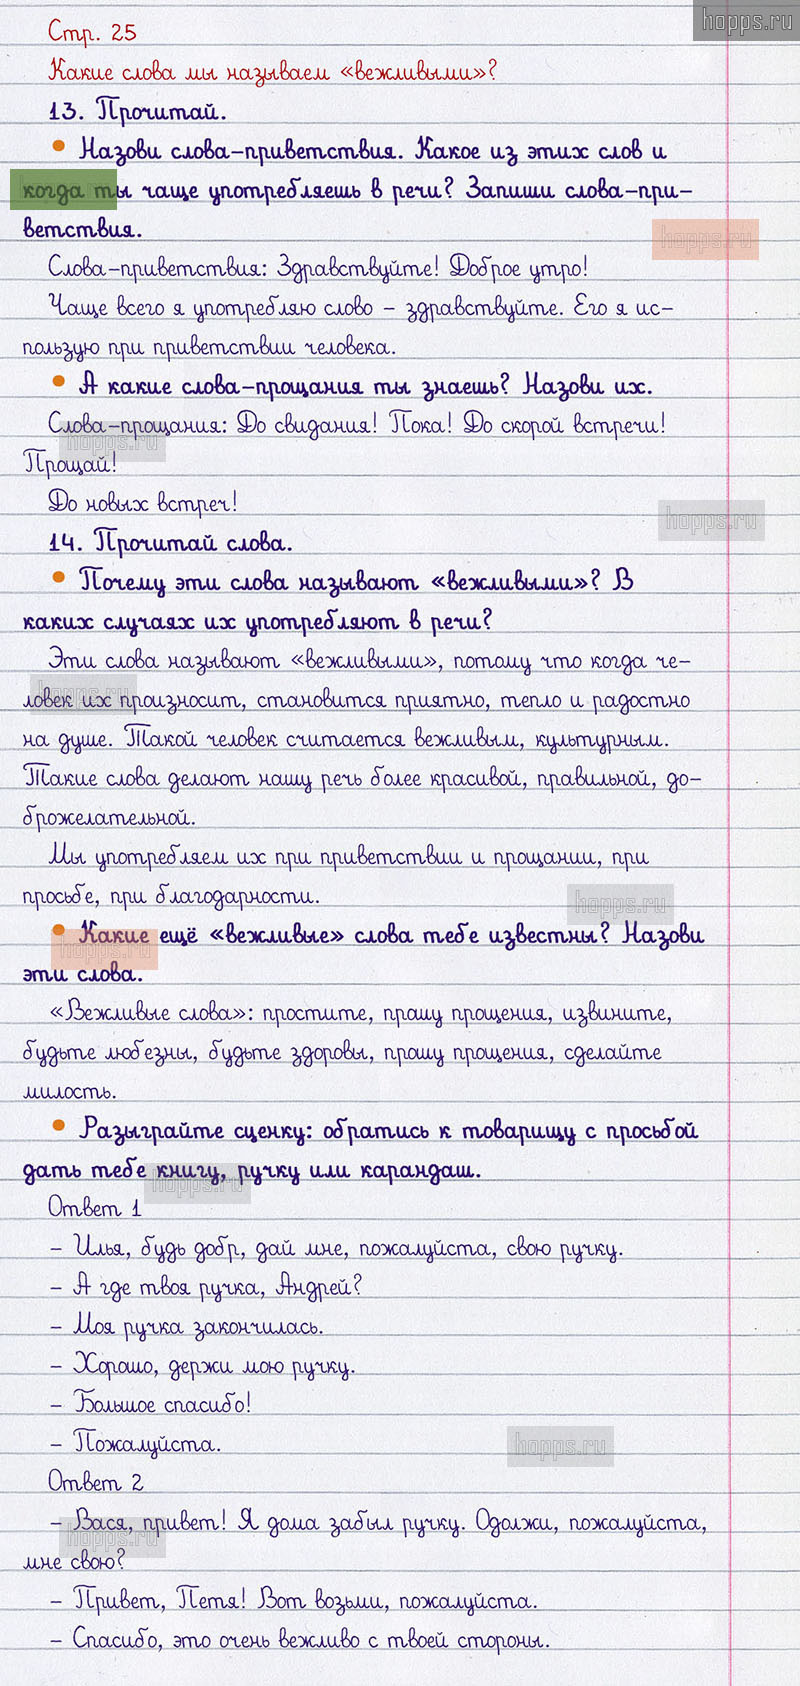 hopps.ru
Стр. 25
Какие слова мы называем «вежливыми»?
13. Прочитай.
• Назови слова-приветствия. Какое из этих слов и
когда ты чаще употребляешь в речи? Запиши слова-при-
ветствия.
hopps.ru
Слова-приветствия: Здравствуйте! Доброе утро!
Чаще всего я употребляю слово – здравствуйте. Его я ис-
пользую при приветствии человека.
• А какие слова-прощания ты знаешь? Назови их.
Слова-прощания: До свидания! Пока! До скорой встречи!
hopps.ru
Прощай!
До новых встреч!
hopps.ru
14. Прочитай слова.
• Почему эти слова называют «вежливыми»? В
каких случаях их употребляют в речи?
Эти слова называют «вежливыми», потому что когда че-
hopps.ru
ловек их произносит, становится приятно, тепло и радостно
на душе. Такой человек считается вежливым, культурным.
Такие слова делают нашу речь более красивой, правильной, до-
брожелательной.
Мы употребляем их при приветствии и прощании, при
просьбе, при благодарности.
hopps.ru
• Какие ещё «вежливые» слова тебе известны? Назови
hopps.ru
эти слова.
«Вежливые слова»: простите, прошу прощения, извините,
будьте любезны, будьте здоровы, прошу прощения, сделайте
милость.
• Разыграйте сценку: обратись к товарищу с просьбой
дать тебе книгу, ручку или карандаш.
hopps.ru
Ответ 1
– Илья, будь добр, дай мне, пожалуйста, свою ручку.
– А где твоя ручка, Андрей?
– Моя ручка закончилась.
– Хорошо, держи мою ручку.
– Большое спасибо!
– Пожалуйста.
hopps.ru
Ответ 2
– Вася, привет! Я дома забыл ручку. Одолжи, пожалуйста,
hopps.ru
мне свою?
– Привет, Петя! Вот возьми, пожалуйста.
– Спасибо, это очень вежливо с твоей стороны.